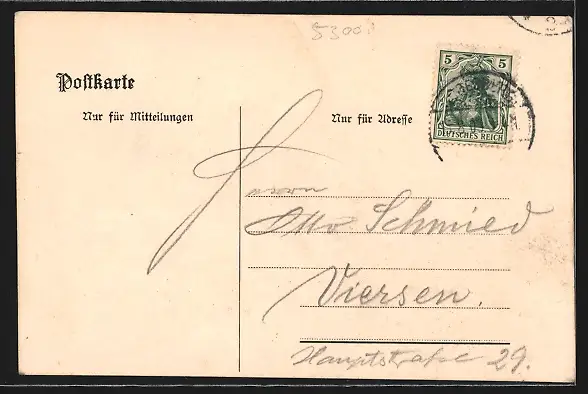 53001
Postkarte
Nur für Mitteilungen
Nur für Adresse
5 5
DEUTSCHES REICH
Herrn
Otto Schmied
Viersen.
Hauptstraße 29.